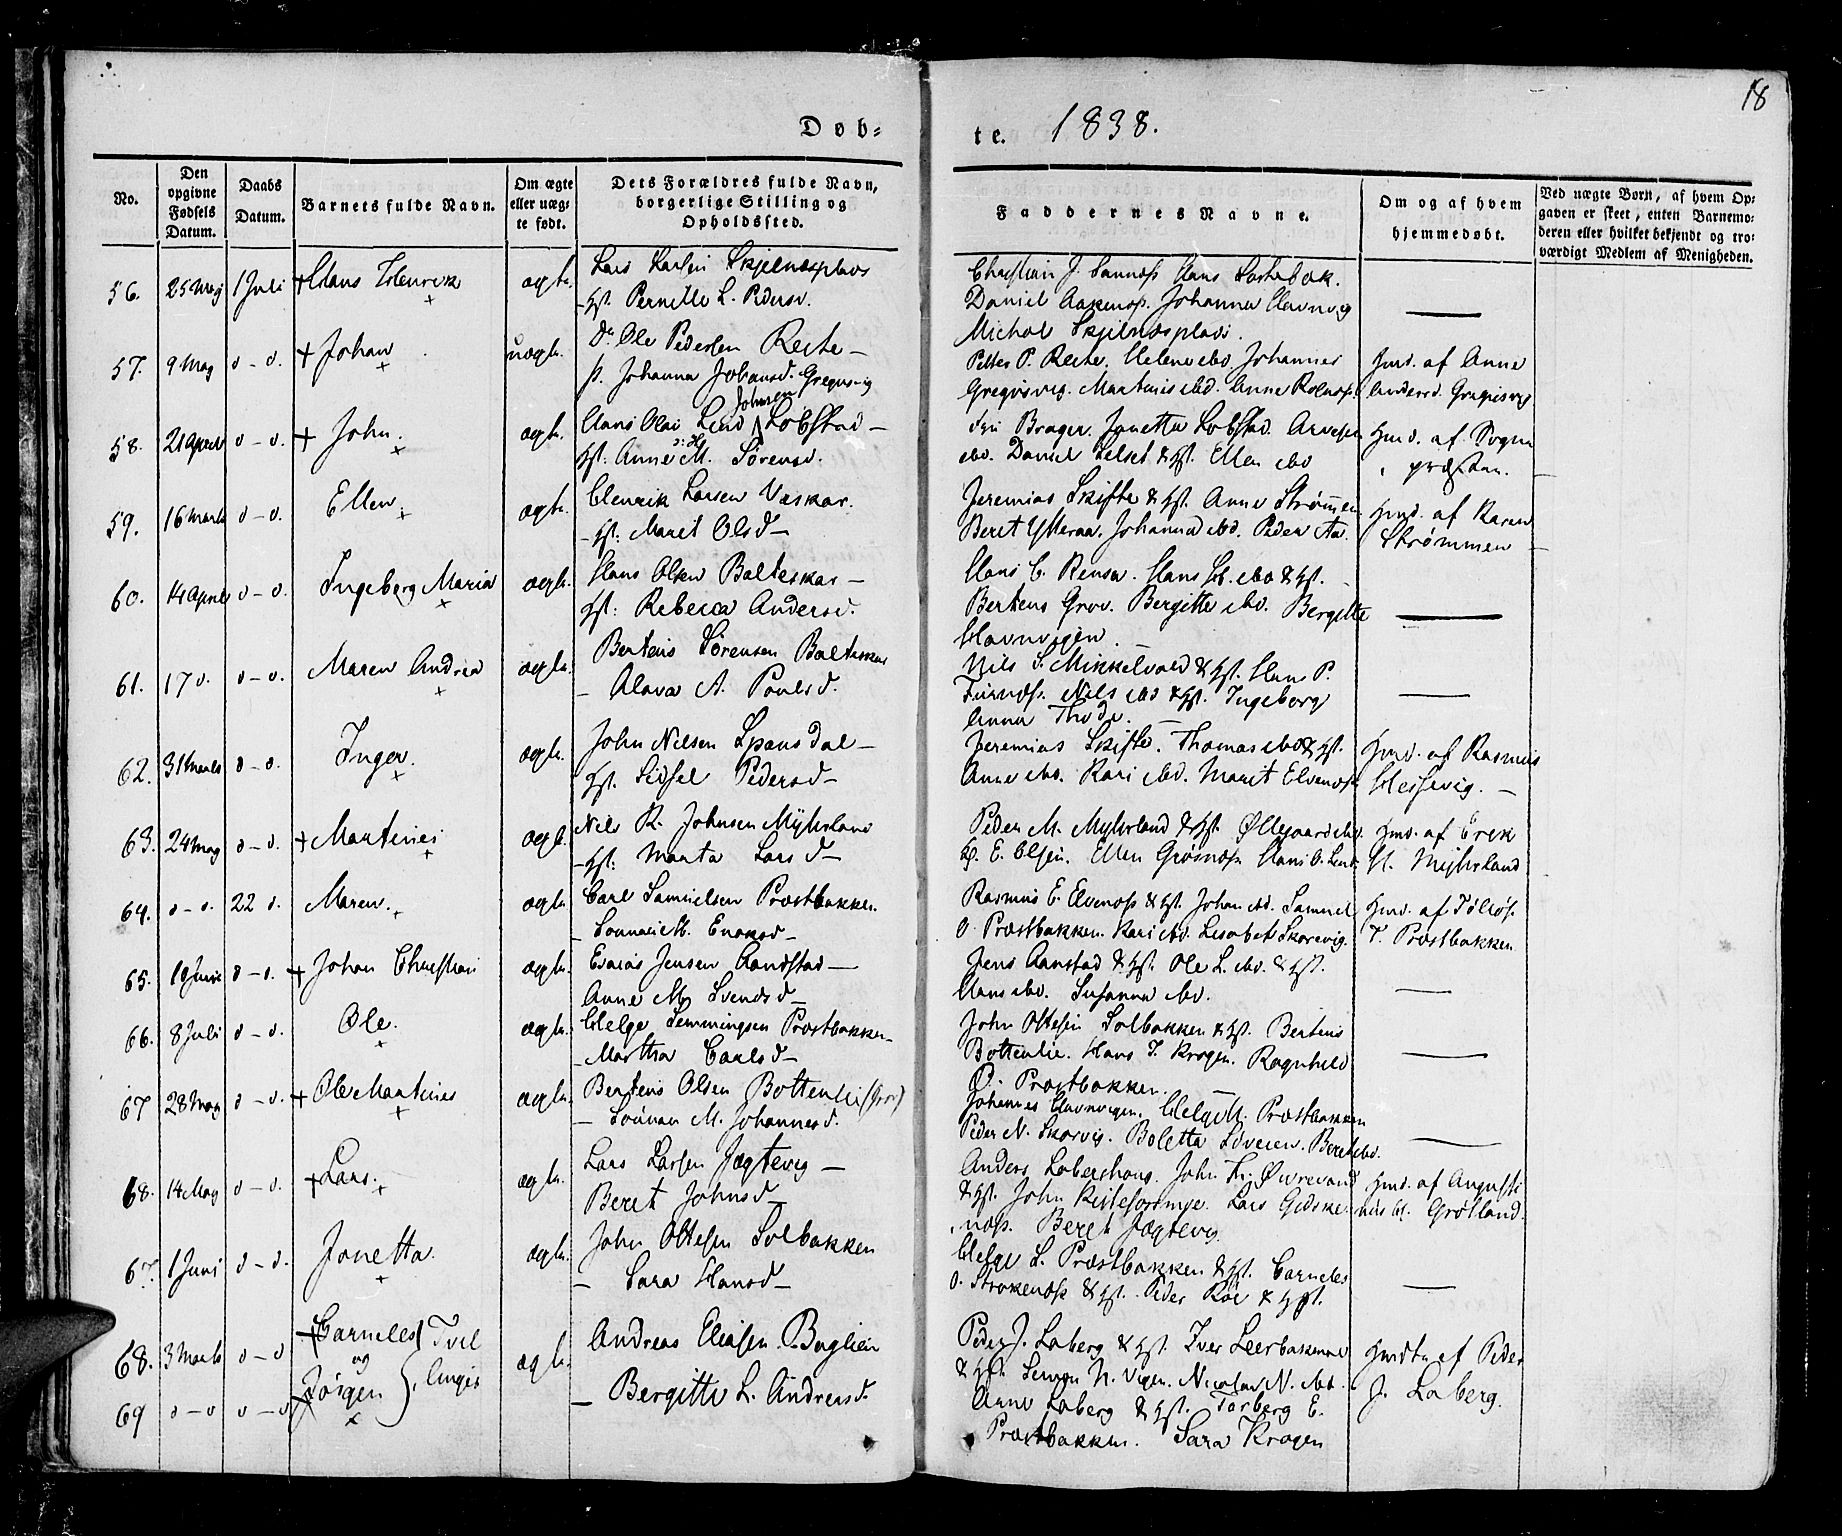 18
Døb-
te. 1838.
No.
Den opgivne Fødsels Datum.
Daabs Datum.
Barnets fulde Navn.
Om ægte eller uæg-te født.
Dets Forældres fulde Navn, borgerlige Stilling og Opholdssted.
Faddernes Navne.
Om og af hvem hjemmedøbt.
Ved uægte Børn, af hvem Op-
gaven er skeet, enten Barnemo-
deren eller hvilket bekjendt og tro-
værdigt Medlem af Menigheden.
56. 25 Maj 1 Juli + Hans Henrik ægte. Lars Larsen Skjelnæsplads
Hst. Pernille L. Pedersd.
Christian J. Sannæss Hans
Daniel Johanna Havnvig
Michal Skjelnæsplads.
57. 9 Maj d - d. + Johan uægte. Ole Pedersen Reite -
p. Johanna Johansd. Gregusvig
Petter P. Reite. Helene ibd. Johannes
Gregusvig. Martinus ibd. Anne
Hmd. af Anne
Andersd. Gregusvig
58. 21 April d - d. + John. ægte. Hans Olai Lind Johnsen Lobstad -
Hst. Anne M. Sørensd.
Brager. Jonetta Lobstad.
ibd. Daniel Selset & Hst. Ellen ibd
Hmd. af Sogne
præsten.
59. 16 Marts d - d. Ellen ægte. Henrik Larsen Vaskar.
- Hst: Marit Olsd -
Jeremias Skifte & Hst. Anne Strømmen
Beret Ytteraa. Johanna ibd. Peder Aa.
Hmd. af Karen
Strømmen -
60. 14 April d - d. Ingeberg Maria ægte. Hans Olsen Balteskar -
Hst: Rebecca Andersd.
Hans C. Rensa. Hans ibd & Hst.
Bertens Grov. Bergitte ibd. Bergitte
Havnvigen
61. 17 d. d - d. Maren Andrea ægte. Bertens Sørensen Balteskar
- Alava A. Poulsd.
Nils S. Mikkelvold & Hst. Hans P.
Nils ibd & Hst. Ingeborg
Anna Thode.
62. 31 Marts d - d. Inger. ægte. John Nilsen Spansdal -
Hst. Sidsel Pedersd -
Jeremias Skifte. Thomas ibd & Hst.
Anne ibd. Kari ibd. Marit Elvenæss
Hmd. af Rasmus
Hessevig. -
63. 24 Maj d - d. + Martines ægte. Nils R. Johnsen Myhrland
- Hst: Marta Larsd -
Peder M. Myhrland & Hst. Øllegaard ibd.
E. Olsen. Ellen Grøsnæss Hans O. Lund.
Hmd. af Erik
H. Myhrland
64. d - d. 22 d. Maren. ægte. Carl Samuelsen Præstbakken.
- M. Enoksd -
Rasmus E. Elvenæss & Hst. Johan ibd. Samuel
O. Præstbakken. Kari ibd. Lisabet Skorevig.
Hmd. af
T. Præstbakken
65. 10 Juni d - d. + Johan Christian ægte. Esaias Jensen Aanstad -
Anne M. Svendsd -
Jens Aanstad & Hst. Ole L. ibd. & Hst.
Hans ibd. Susanna ibd.
66. 8 Juli d - d. Ole. ægte. Helge Semmingsen Præstbakken
- Martha Carlsd -
John Ottesen Solbakken & Hst. Bertens
Bottenlie. Hans J. Krogen. Ragnhild
Præstbakken. -
67 28 Maj d - d. + Ole Martines ægte. Bertens Olsen Bottenlie (Grov)
- M. Johannesd.
Johannes Havnvigen. Helge Præstbakken
Peder N. Skorvig. Boletta Beret ibd.
68. 14 Maj d - d. + Lars. ægte. Lars Larsen Jægtevig -
Beret Johnsd -
Anders Laberghaug. John Øvrevand
& Hst. John Lars
næss. Beret Jægtevig.
Hmd. af Augusti
nus H. Grøtland.
67. 1 Juni d - d. Jonetta. ægte. John Ottesen Solbakken
- Sara Hansd -
Helge S. Præstbakken & Hst. Carneles
O. Strokenæss & Hst. Peder Roe & Hst.
68. 3 Marts d - d + Carneles Tvil
og
69 d - d d - d Jørgen linger ægte. Andreas Eliasen
- Bergitte L. Andreasd.
Peder J. Laberg & Hst. Iver Leerbakene
& Hst. Simon N. Vigen. Nicolai N. ibd.
Anne Laberg & Hst. Torberg E.
Præstbakken. Sara Krogen
Hmdte af Peder
J. Laberg.